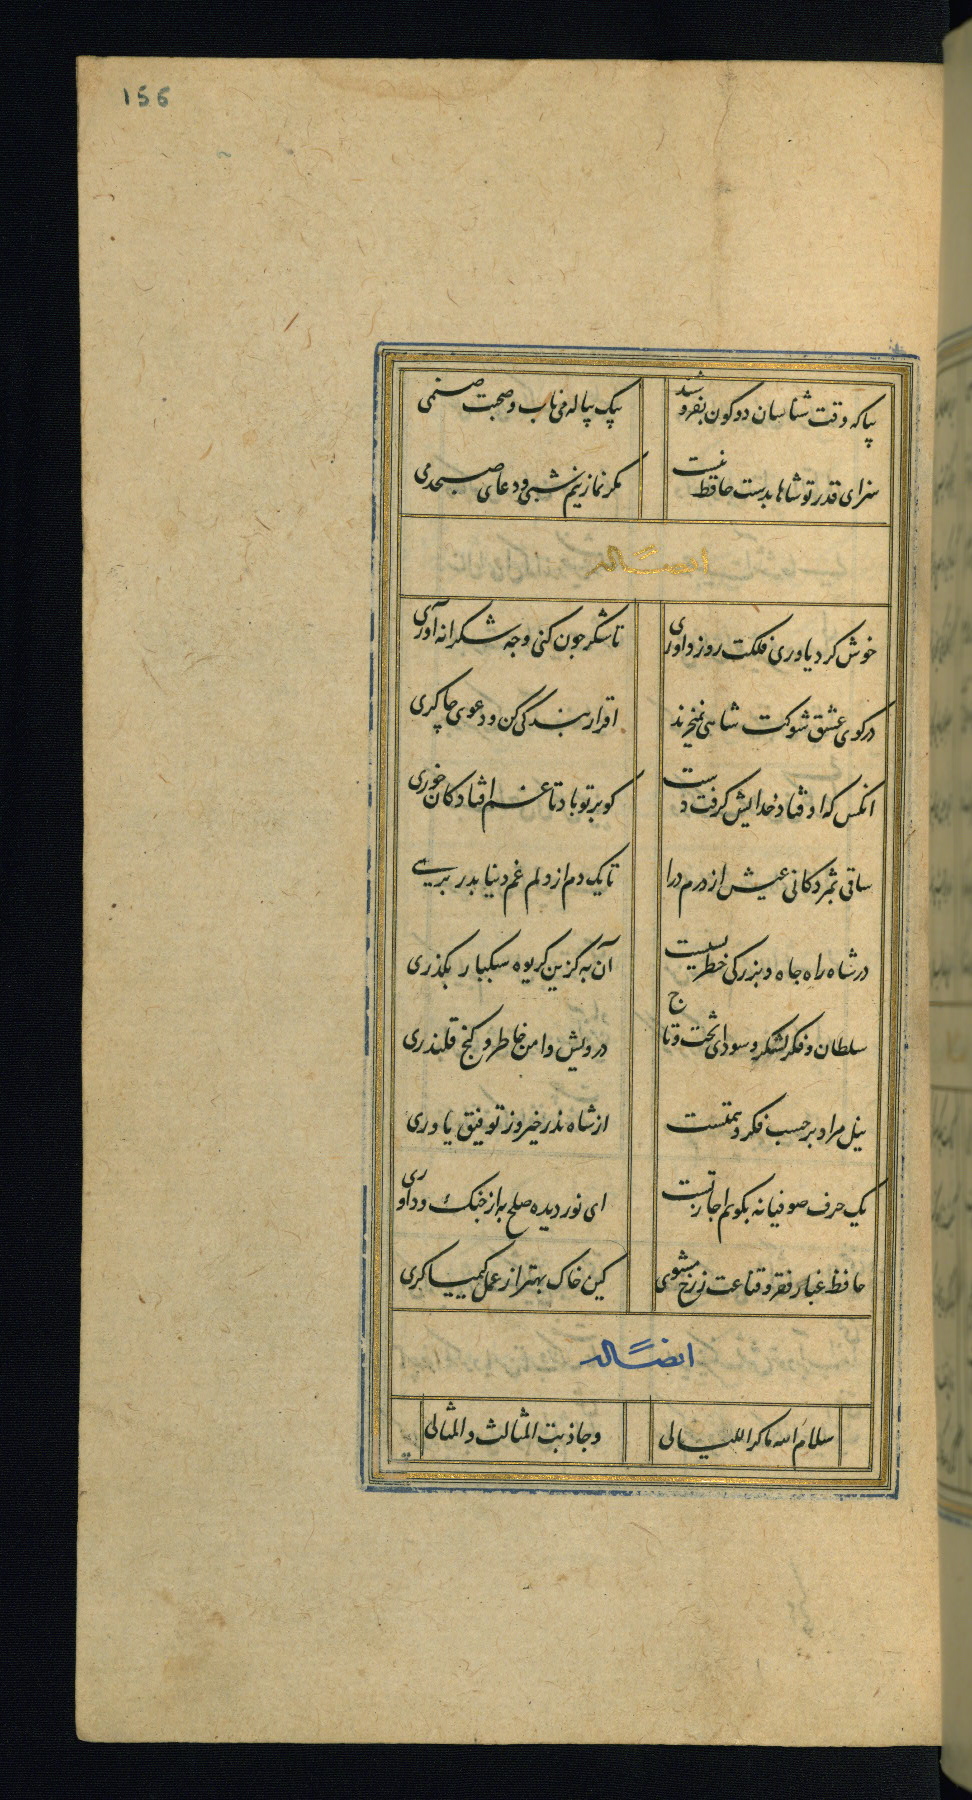 156
بیا که وقت شناسان دو کون بفروشند
بیک پیاله می ناب و صحبت صنمی
سزای قدر تو شاها بدست حافظ نیست
مکر نماز نیم شبی و دعای صبحدمی
ایضاً له
خوش کرد یاوری فلکت روز داوری
تا شکر چون کنی و چه شکرانه آوری
در کوی عشق شوکت شاهی نمیخرند
اقرار بندگی کن و دعوی چاکری
انکس که اوفتاد خدایش کرفت دست
کو بر تو باد تا غم افتادکان خوری
ساقی بمژدکانی عیش از درم درا
تا یک دم از دلم غم دنیا بدر بری
در شاه راه جاه و بزرکی خطر بسیست
آن به کزین کریوه سبکبار بکذری
سلطان و فکر لشکر و سودای تخت و تاج
درویش و امن خاطر و کنج قلندری
نیل مراد بر حسب فکر و همتست
از شاه نذر خیر و ز توفیق یاوری
یک حرف صوفیانه بکویم اجازتست
ای نور دیده صلح به از جنک و داوری
حافظ غبار فقر و قناعت ز رخ مشوی
کین خاک بهتر از عمل کیمیاکری
ایضاً له
سلام الله ما کر اللیالی
وجاذبت المثالث والمثالی